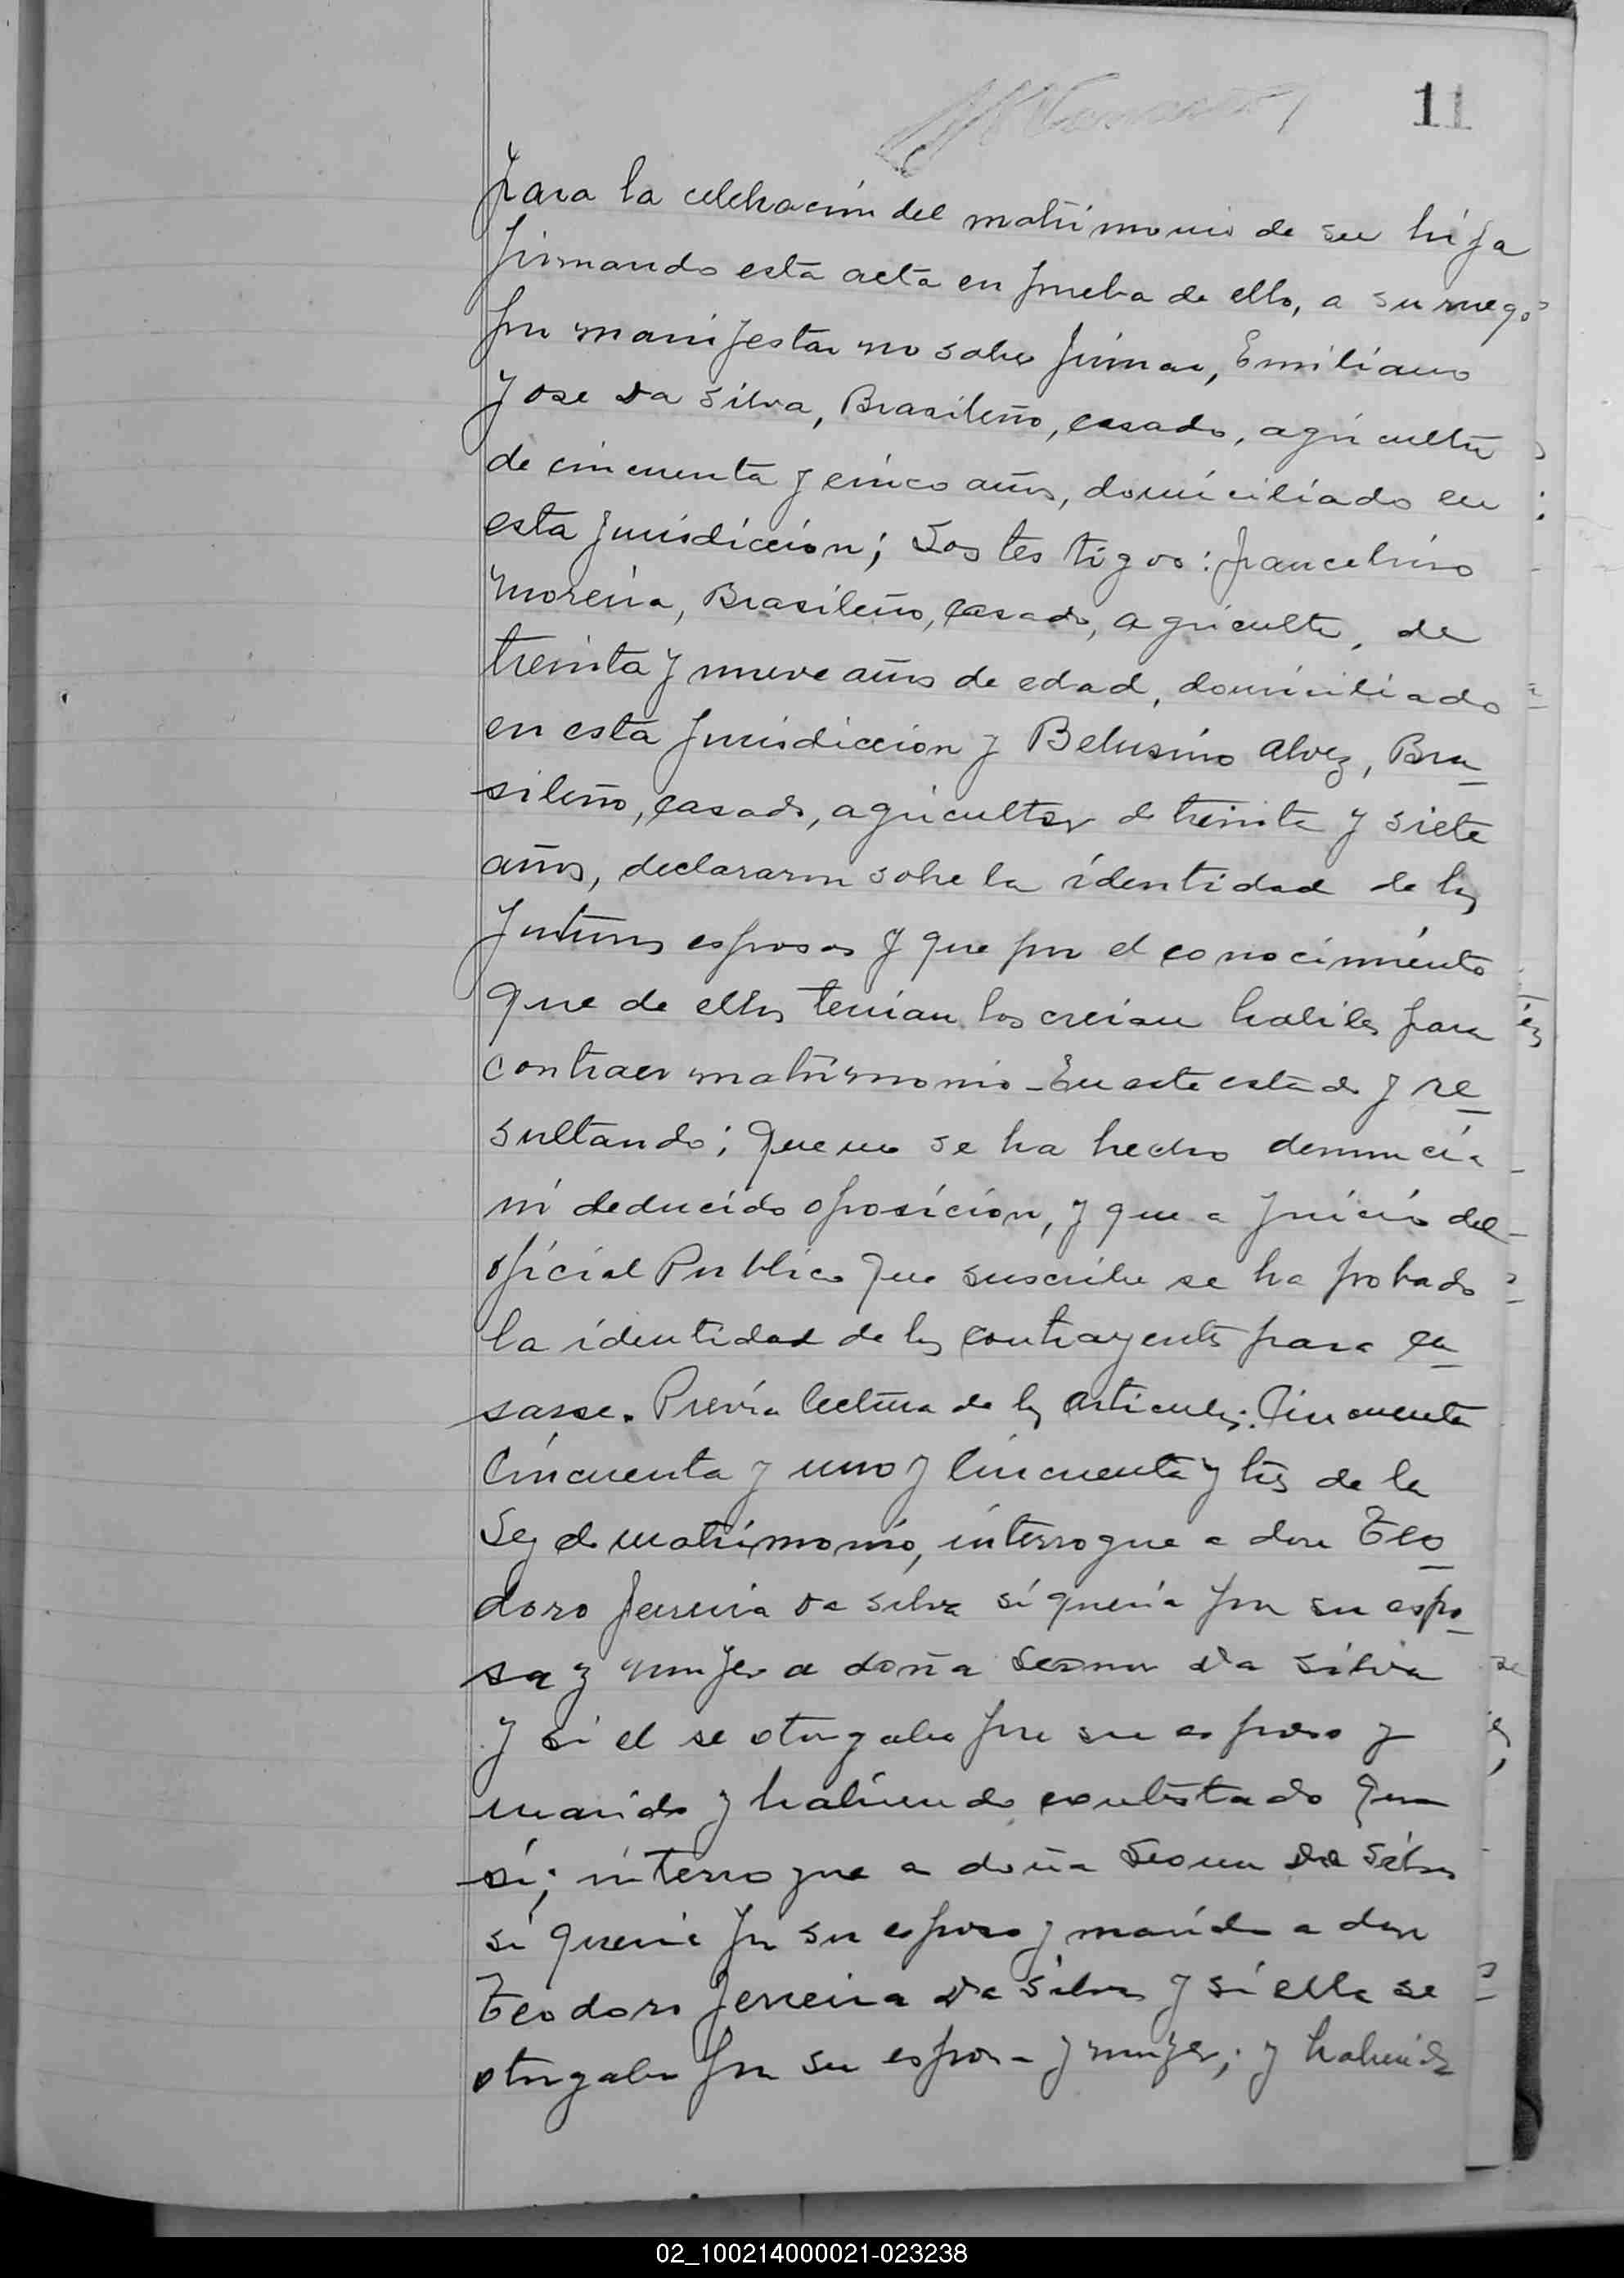 11
para la celebración del matrimonio de su hija
firmando esta acta en prueba de ello, a su ruego
por manifestar no saber firmar, Emiliano
Jose Da Silva, Brasileño, casado, agricultor
de cincuenta y cinco años, domiciliado en
esta jurisdiccion; Los testigos: francelino
Moreira, Brasileño, casado, agricultor, de
treinta y nueve años de edad, domiciliado
en esta jurisdiccion y Belusino Alvez, Bra_
sileño, casado, agricultor de treinta y siete
años, declararon sobre la identidad de los
futuros esposos y que por el conocimiento
que de ellos tenian los creian habiles para
contraer matrimonio - En este estado y re_
sultando; que no se ha hecho denuncia
ni deducido oposición, y que a juicio del
oficial Publico que suscribe se ha probado
la identidad de los contrayentes para ca_
sarse. Previa lectura de los articulos: Cincuenta
Cincuenta y uno y Cincuenta y tres de la
Ley de matrimonio, interrogue a don Teo_
doro ferreira Da Silva si queria por su espo_
sa y mujer a doña Da Silva
y si el se otorgaba por su esposo y
marido y habiendo contestado que
si; interrogue a doña Da Silva
si queria por su esposo y marido a don
Teodoro ferreira Da Silva y si ella se
otorgaba por su esposa y mujer; y habiendo
02_100214000021-023238